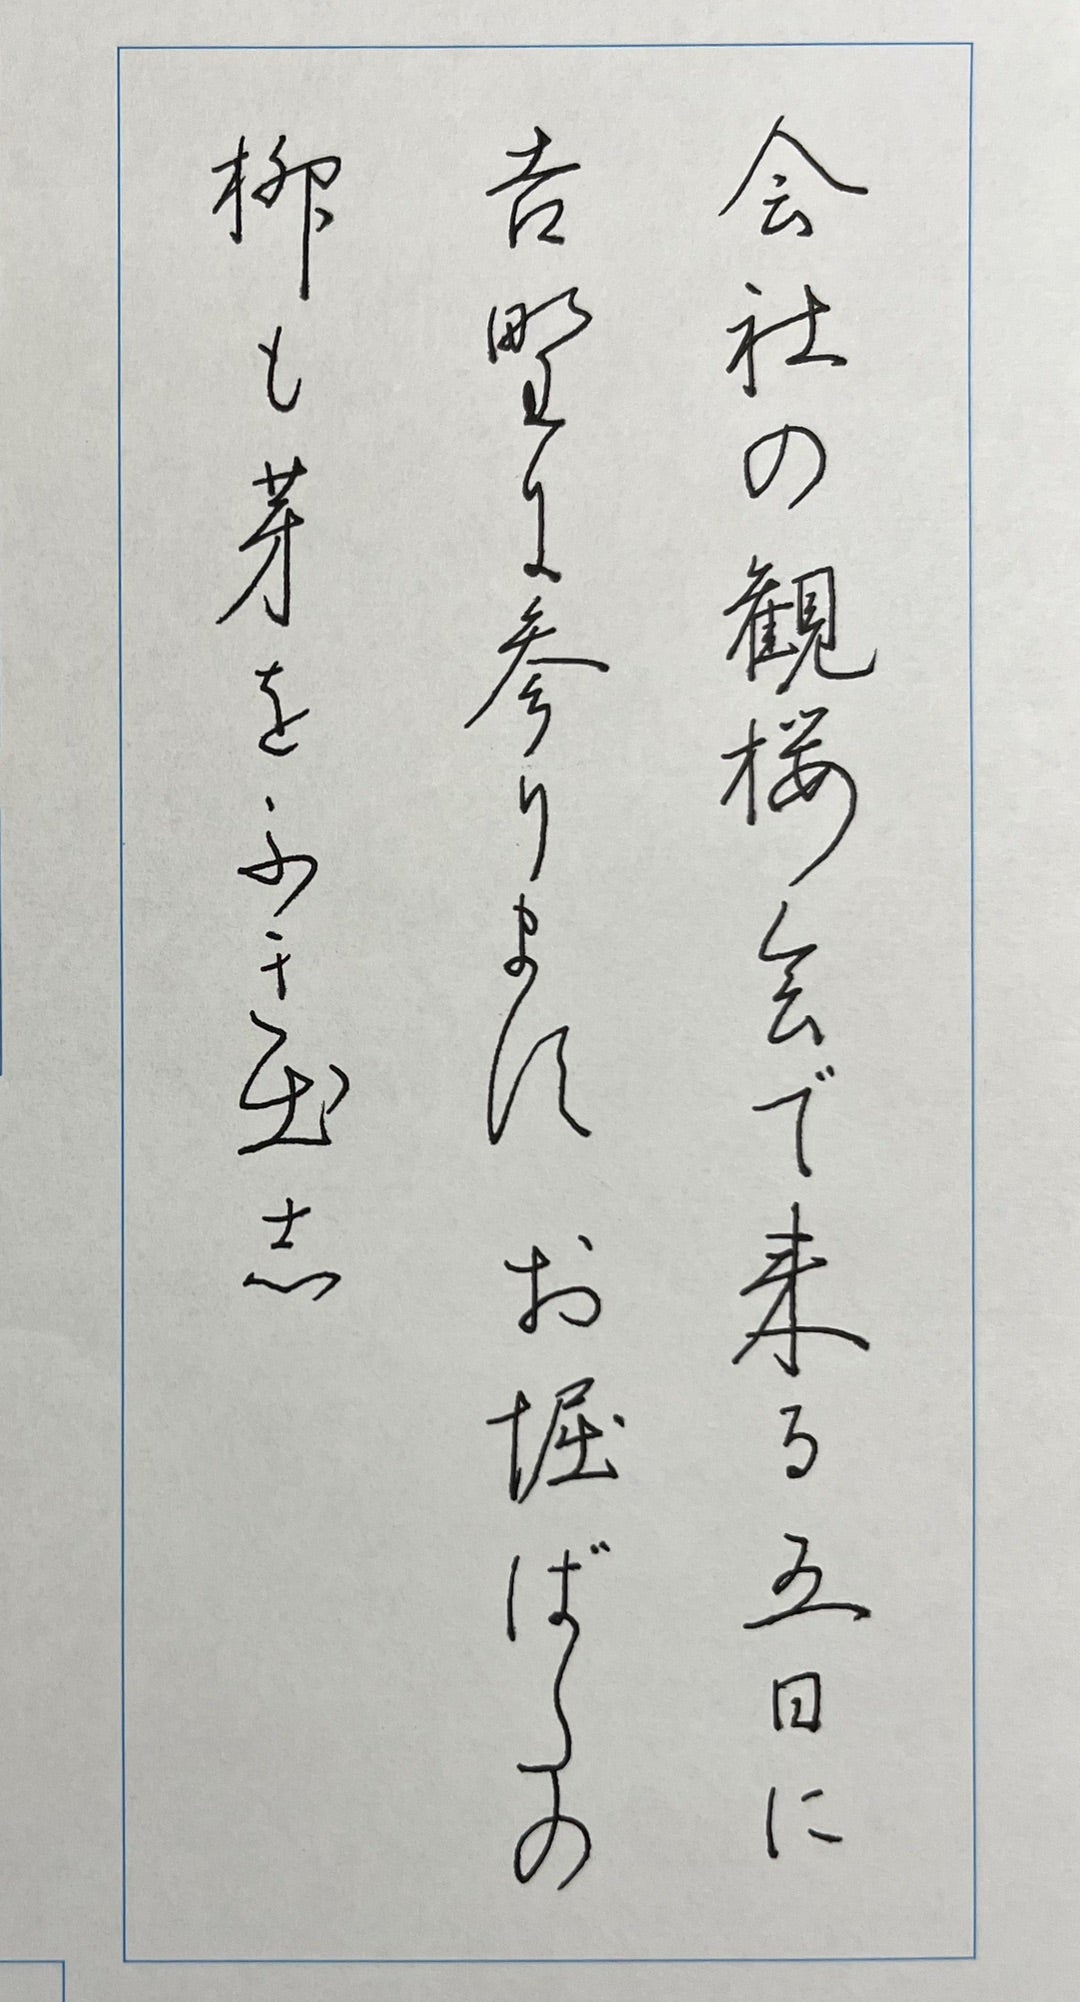 会社の観桜会で来る五日に
吉野に参ります お堀ばたの
柳も芽をふき出し